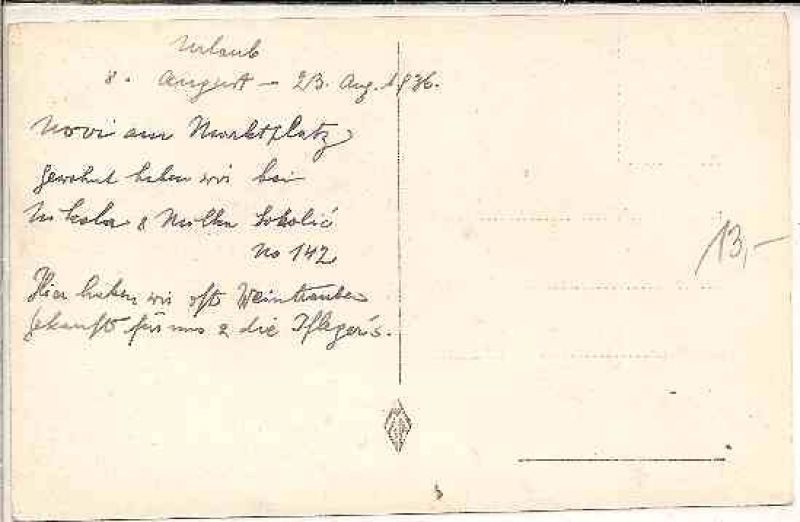 Urlaub
8. August – 23. Aug. 1936.
Novi am Marktplatz
gewohnt haben wir bei
Nikola & Milka Sokolić
No 142
Hier haben wir oft Weintrauben
gekauft für uns & die Pfleger's.
13,–